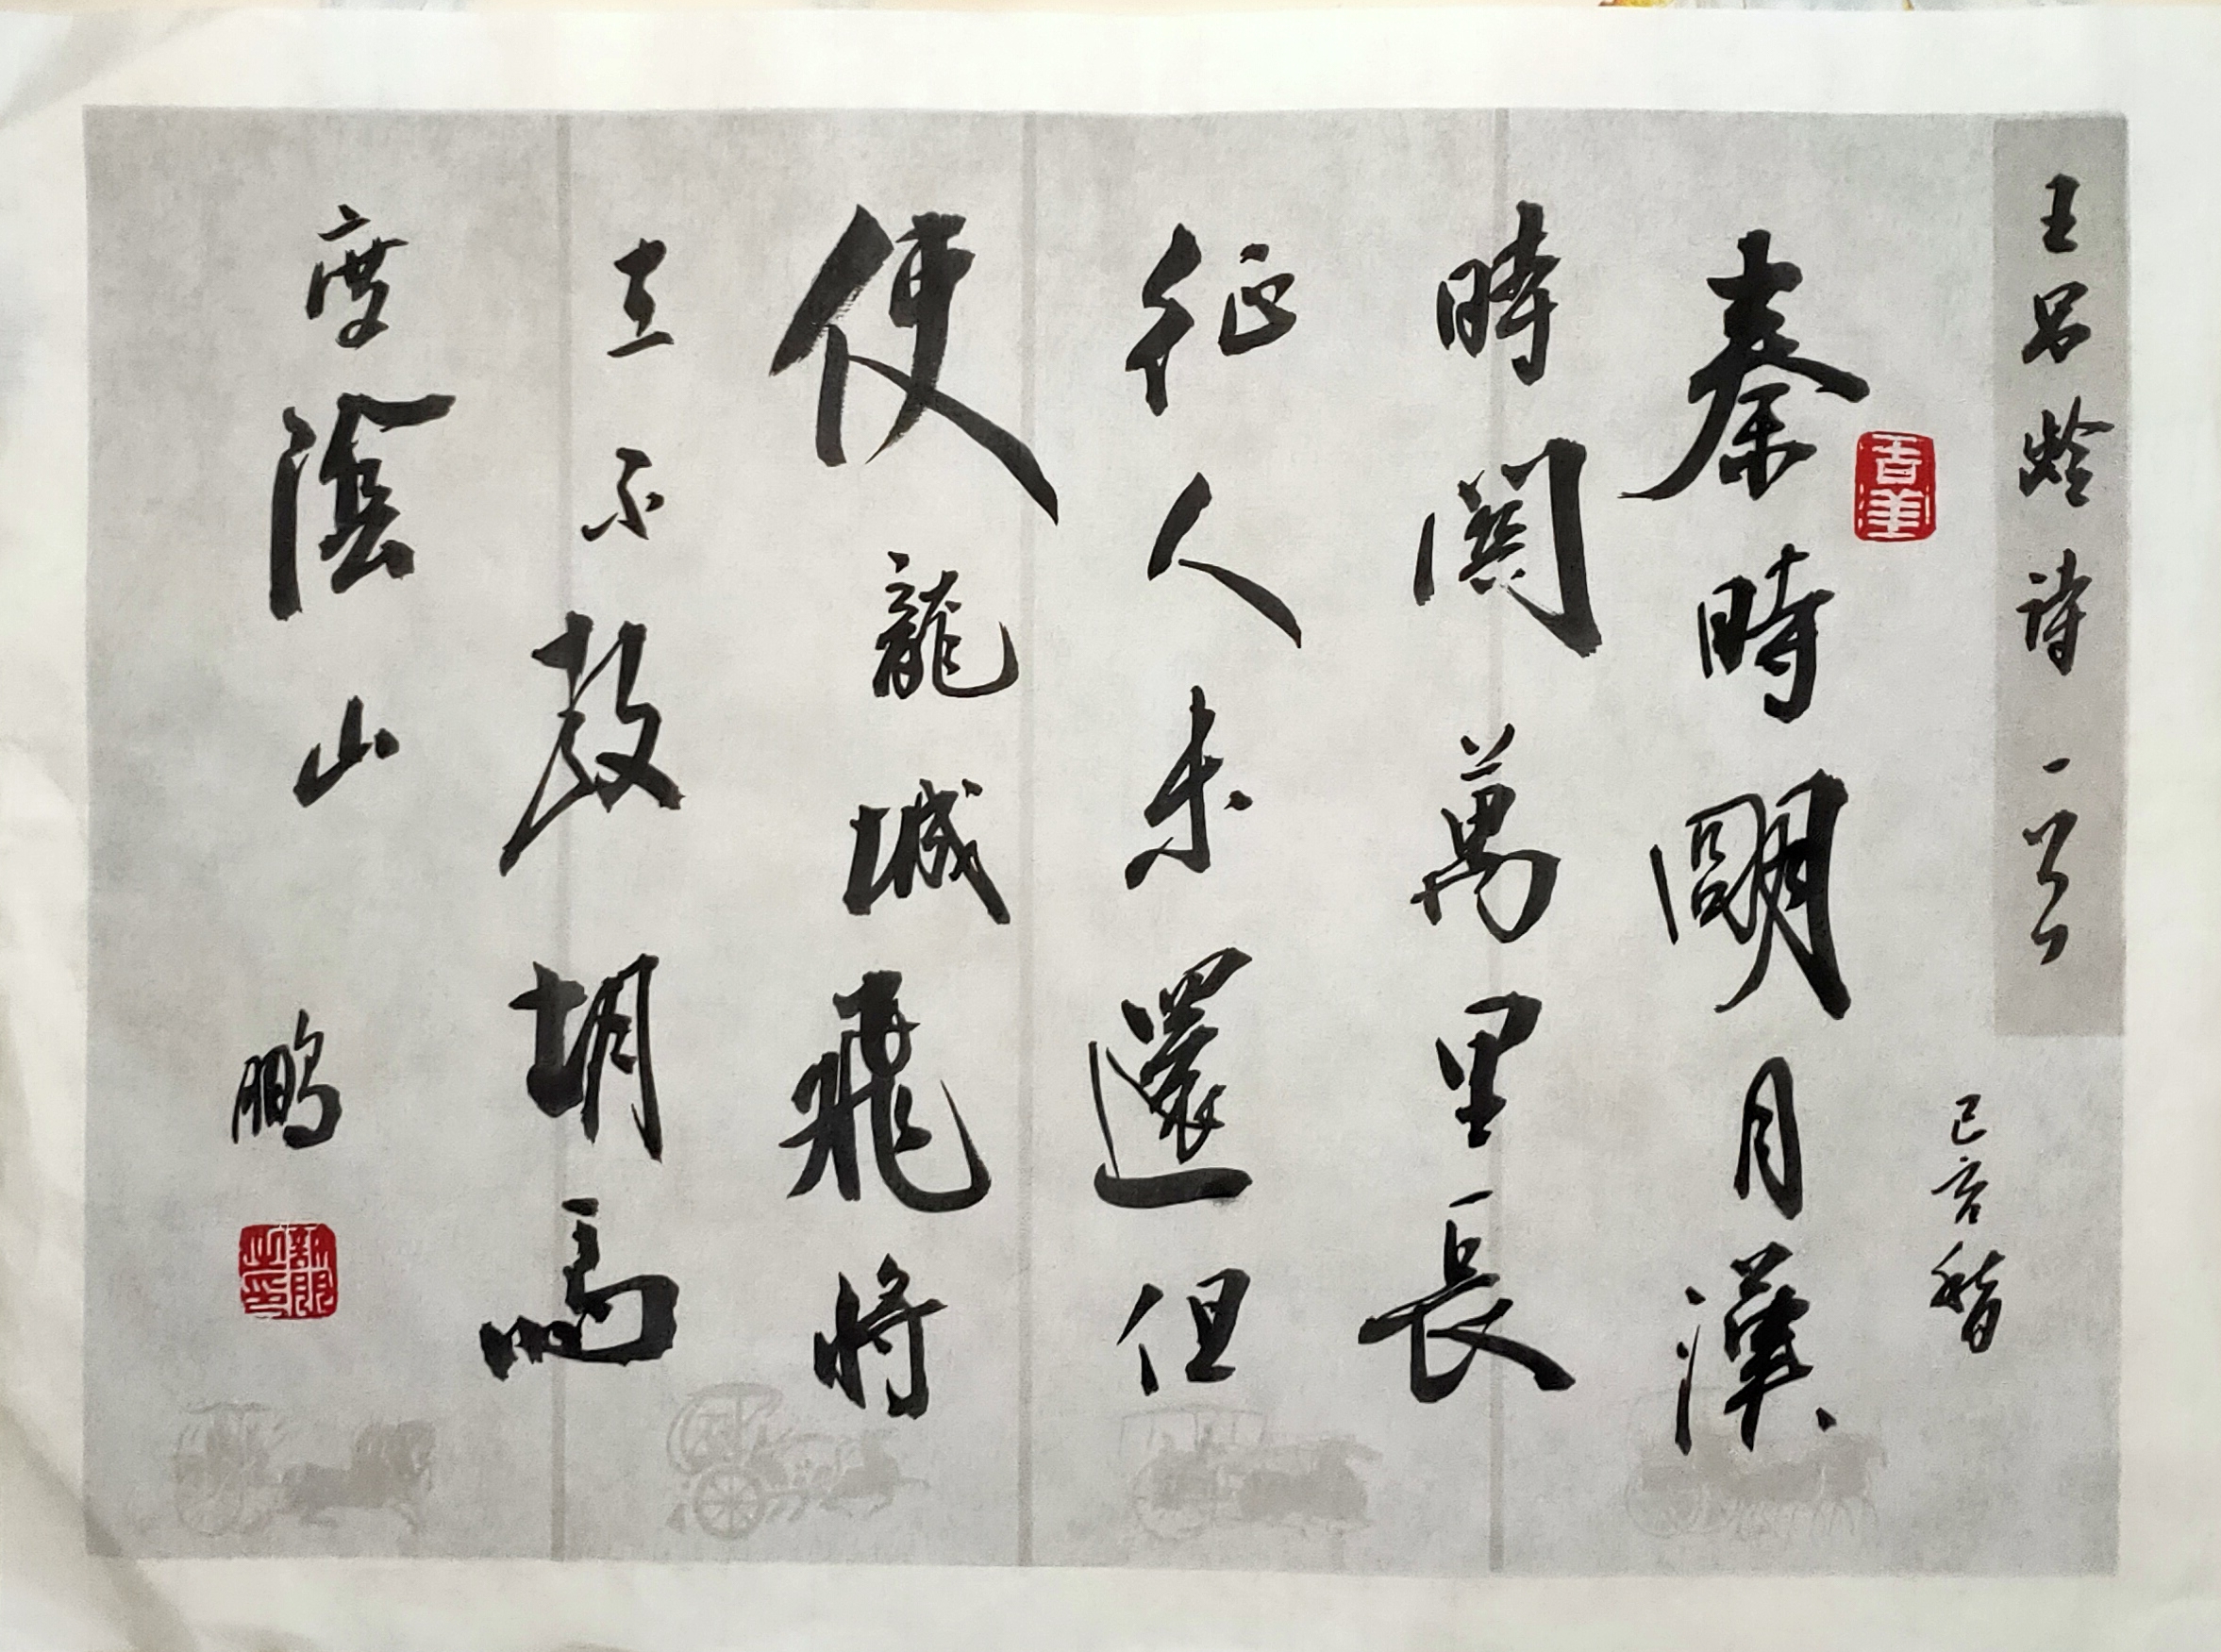 王昌齡詩一首
己亥
吉羊
秦時朙月漢
時關萬里長
征人未還但
使龍城飛將
在不教胡馬
度陰山
鵬